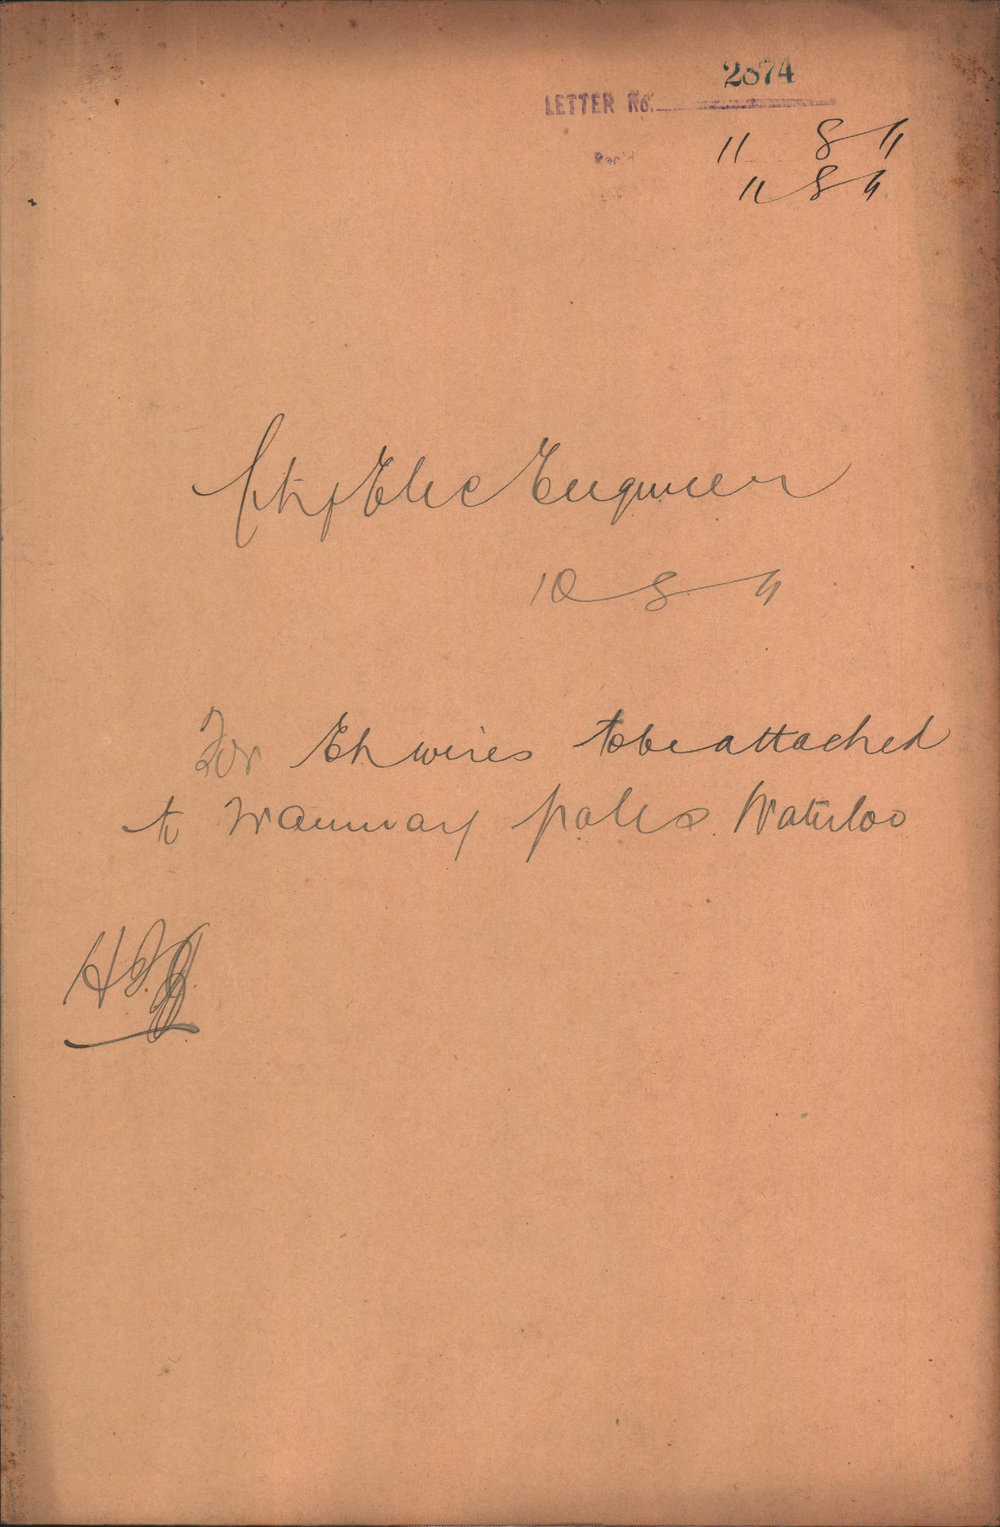 2874
LETTER No.
Rec'd 11 8 11
11 8 11
City Elec Engineer
10 8 11
For Eh wires to be attached
to Tramway poles. Waterloo